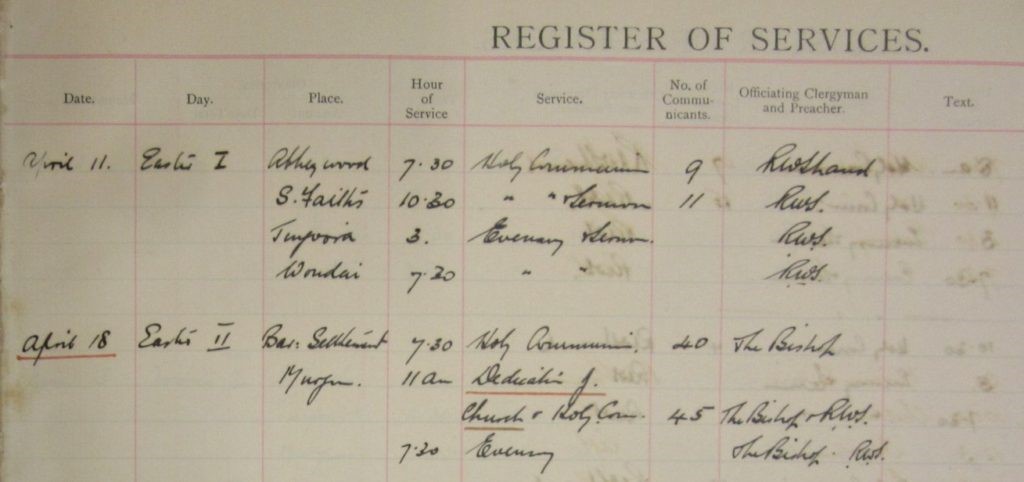 REGISTER OF SERVICES.
Date. Day. Place. Hour of Service Service. No. of Commu- nicants. Officiating Clergyman and Preacher. Text.
April 11. Easter I 7.30 Holy Communion 9 RWShand
S. Faith's 10.30 " " & Sermon 11 RWS.
3. Evensong & Sermon. RWS.
Wondai 7.30 " " RWS.
April 18 Easter II Bar: Settlement 7.30 Holy Communion. 40 The Bishop
Murgon. 11 am Dedication of
Church & Holy Com. 45 The Bishop & RWS.
7.30 Evensong The Bishop. RWS.